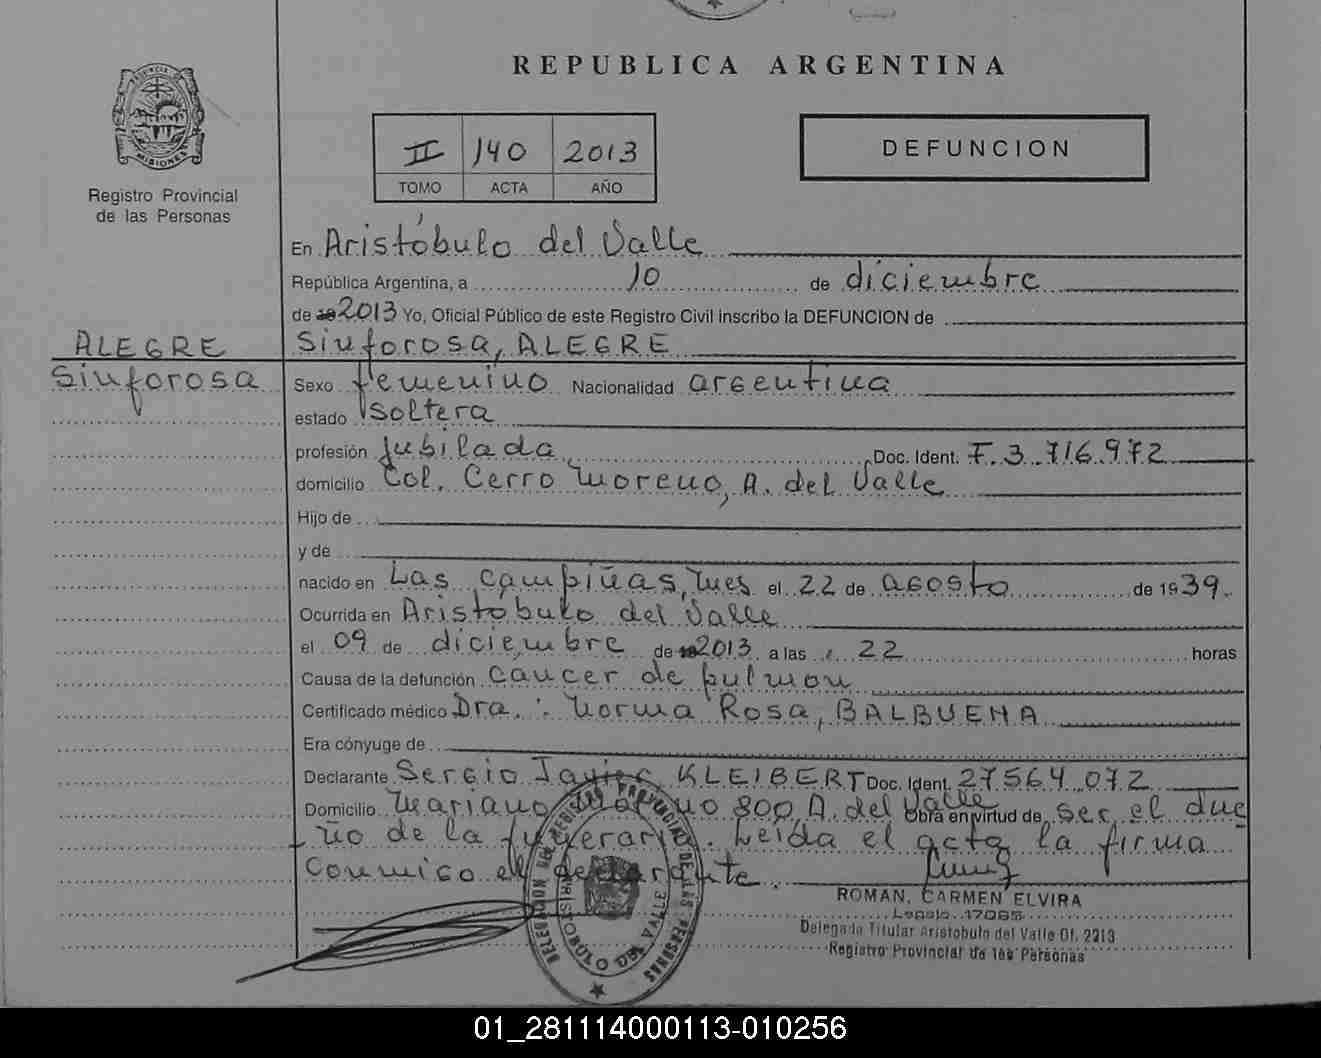 REPUBLICA ARGENTINA
PROVINCIA DE
MISIONES
Registro Provincial
de las Personas
II 140 2013
TOMO ACTA AÑO
DEFUNCION
En Aristóbulo del Valle
República Argentina, a 10 de diciembre
de 2013 Yo, Oficial Público de este Registro Civil inscribo la DEFUNCION de
ALEGRE Sinforosa, ALEGRE
Sinforosa Sexo femenino Nacionalidad argentina
estado soltera
profesión jubilada Doc. Ident. F. 3.716.972
domicilio Col. Cerro Moreno, A. del Valle
Hijo de
y de
nacido en Las campiñas, Mnes el 22 de agosto de 1939.
Ocurrida en Aristobulo del Valle
el 09 de diciembre de 2013 a las 22 horas
Causa de la defunción cáncer de pulmon
Certificado médico Dra. : Norma Rosa, BALBUENA
Era cónyuge de
Declarante Sergio Javier KLEIBERT Doc. Ident. 27564.072
Domicilio Mariano 800, A. del Valle Obra en virtud de ser el due
ño de la funeraria. Leída el acta la firma
conmigo el declarante.
DELEGACION DEL REGISTRO PROVINCIAL DE LAS PERSONAS
ARISTOBULO DEL VALLE
ROMAN, CARMEN ELVIRA
Legajo 17085
Delegada Titular Aristobulo del Valle Of. 2213
Registro Provincial de las Personas
01_281114000113-010256